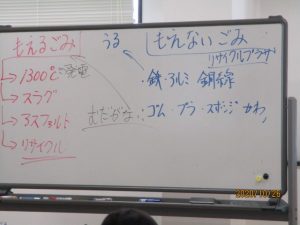 もえるごみ
うる
もえないごみ
リサイクルプラザ
→1300℃
発電
→スラグ
→アスファルト
→リサイクル
・鉄・アルミ 銅線
むだがない
・ゴム・プラ・スポンジ かわ
2020/10/26